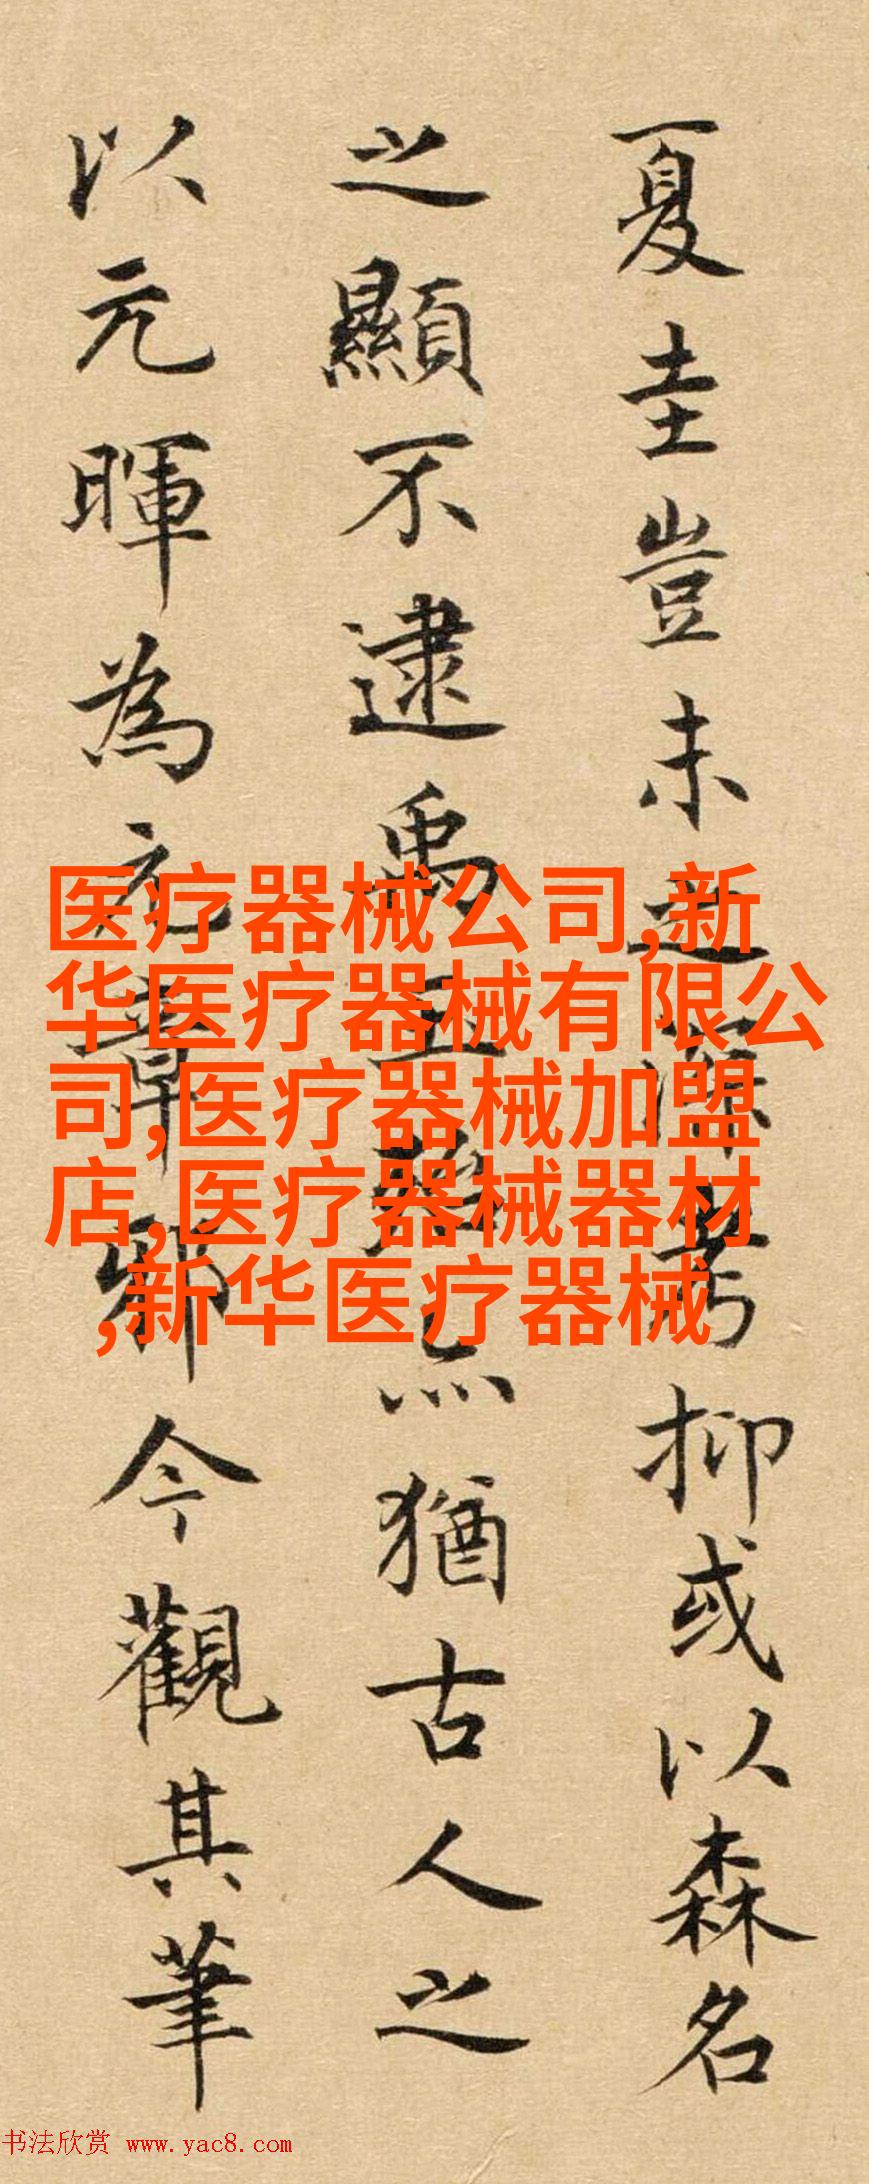 夏圭豈未之深考抑或以森名
之顯不逮禹玉亦猶古人之
以元暉為元章邪今觀其筆
医疗器械公司,新
华医疗器械有限公
司,医疗器械加盟
店,医疗器械器材
,新华医疗器械
书法欣赏 www.yac8.com